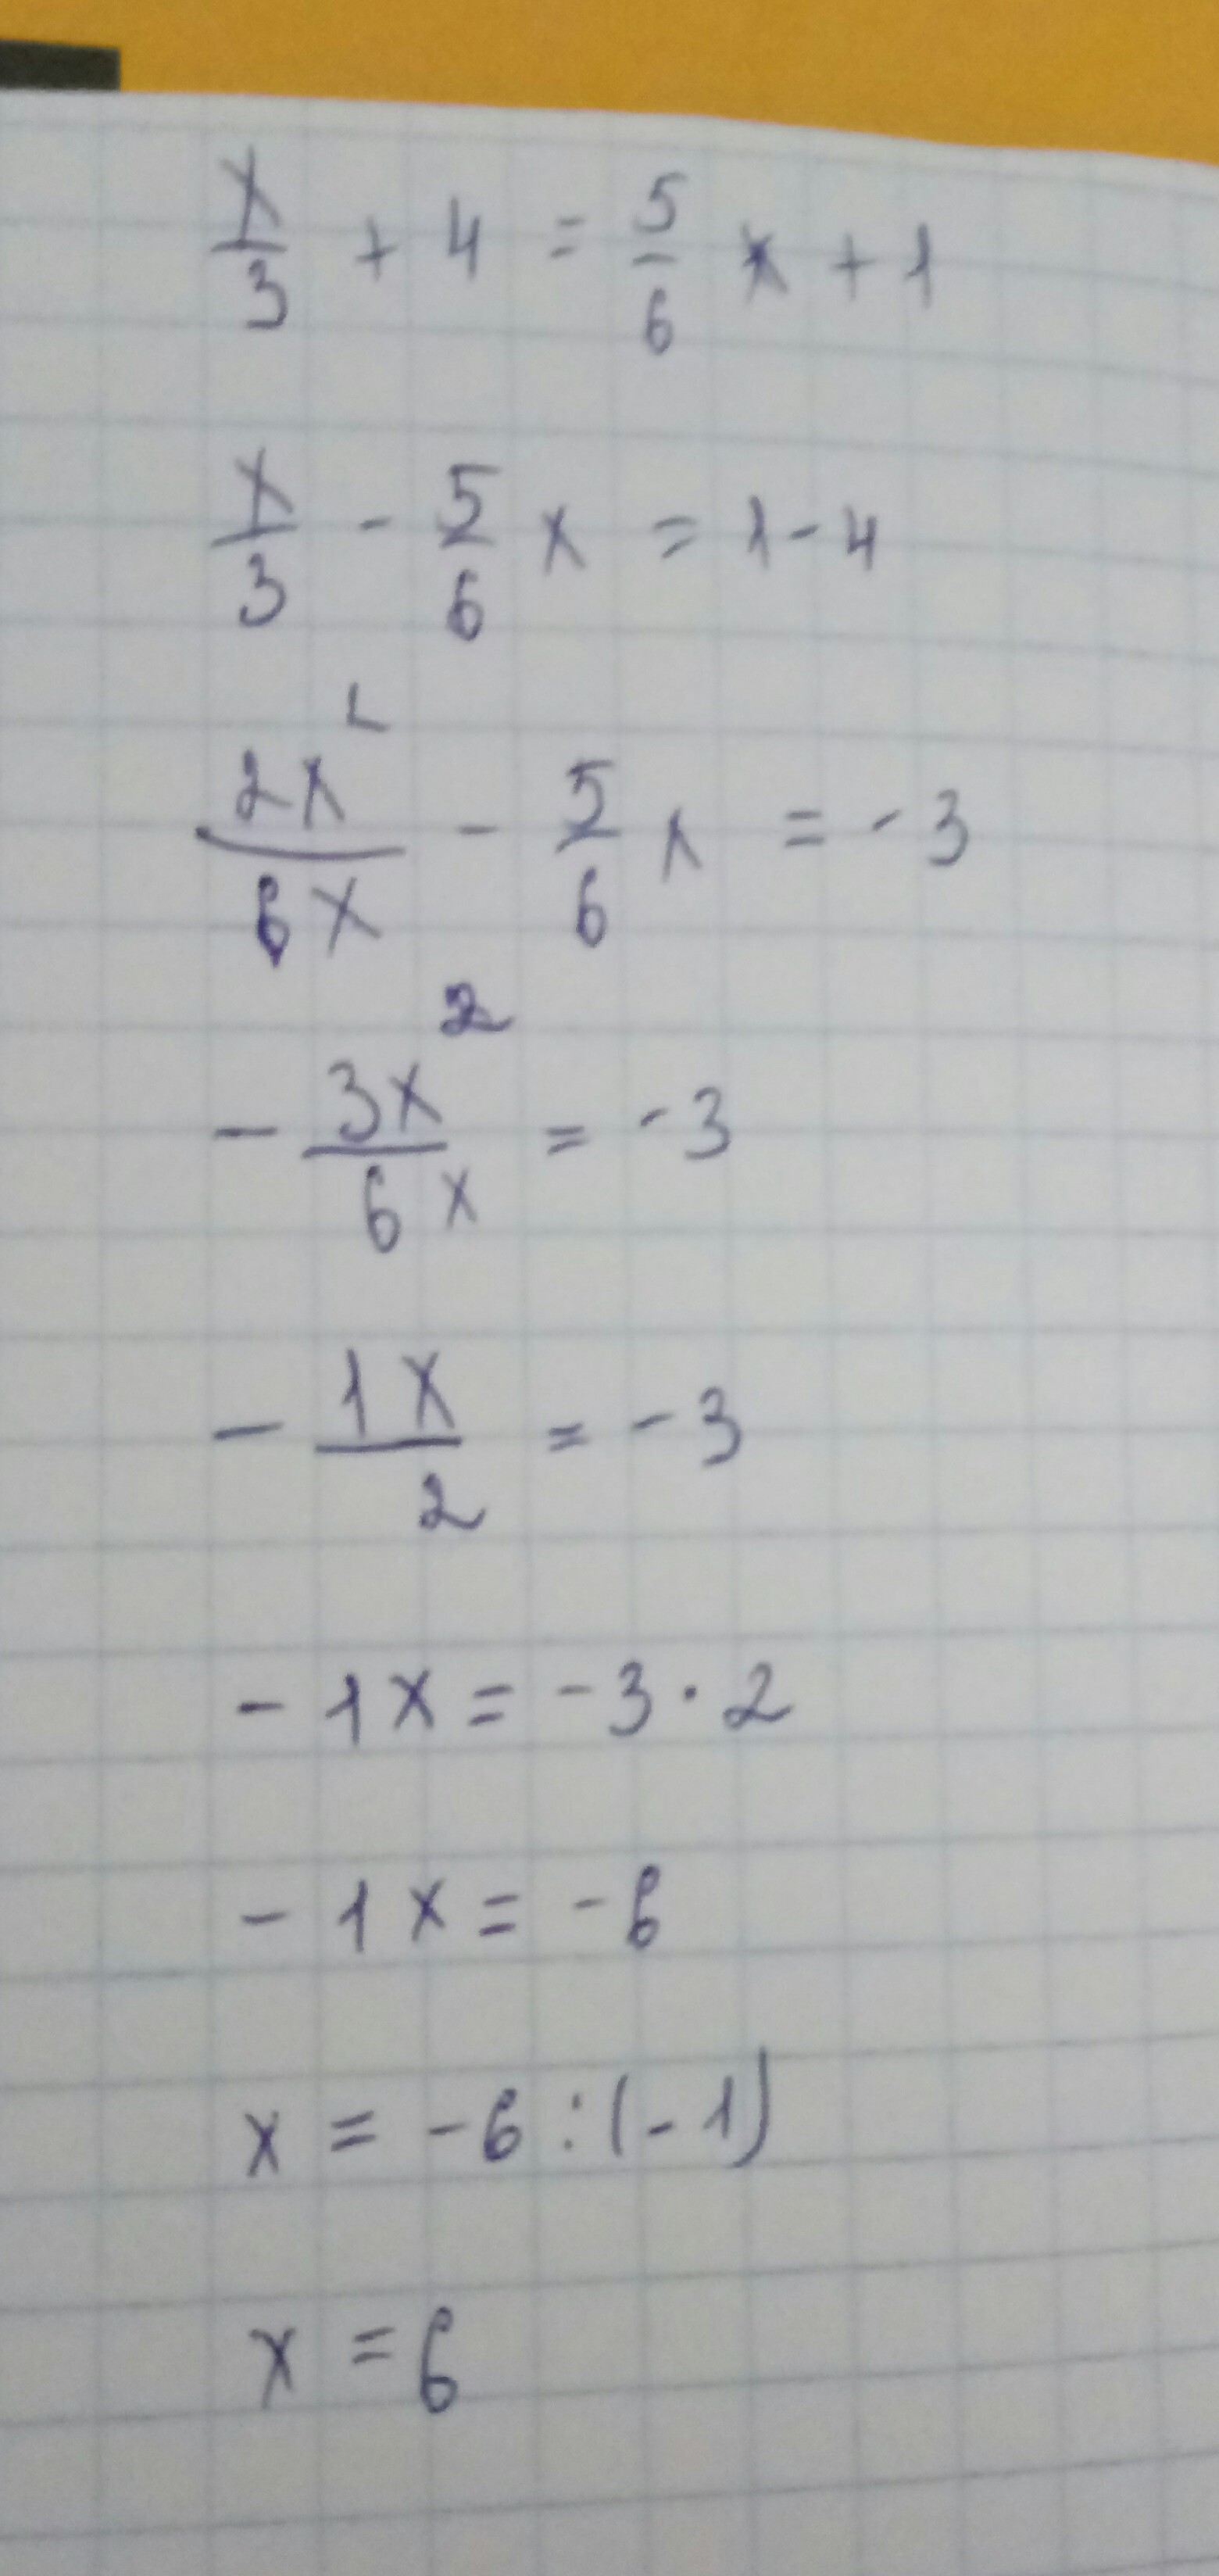 x/3 + 4 = 5/6 x + 1
x/3 - 5/6 x = 1 - 4
2x²/6x - 5/6 x = -3
- 3x²/6x = -3
- 1x/2 = -3
- 1x = -3 · 2
- 1x = -6
x = -6 : (-1)
x = 6